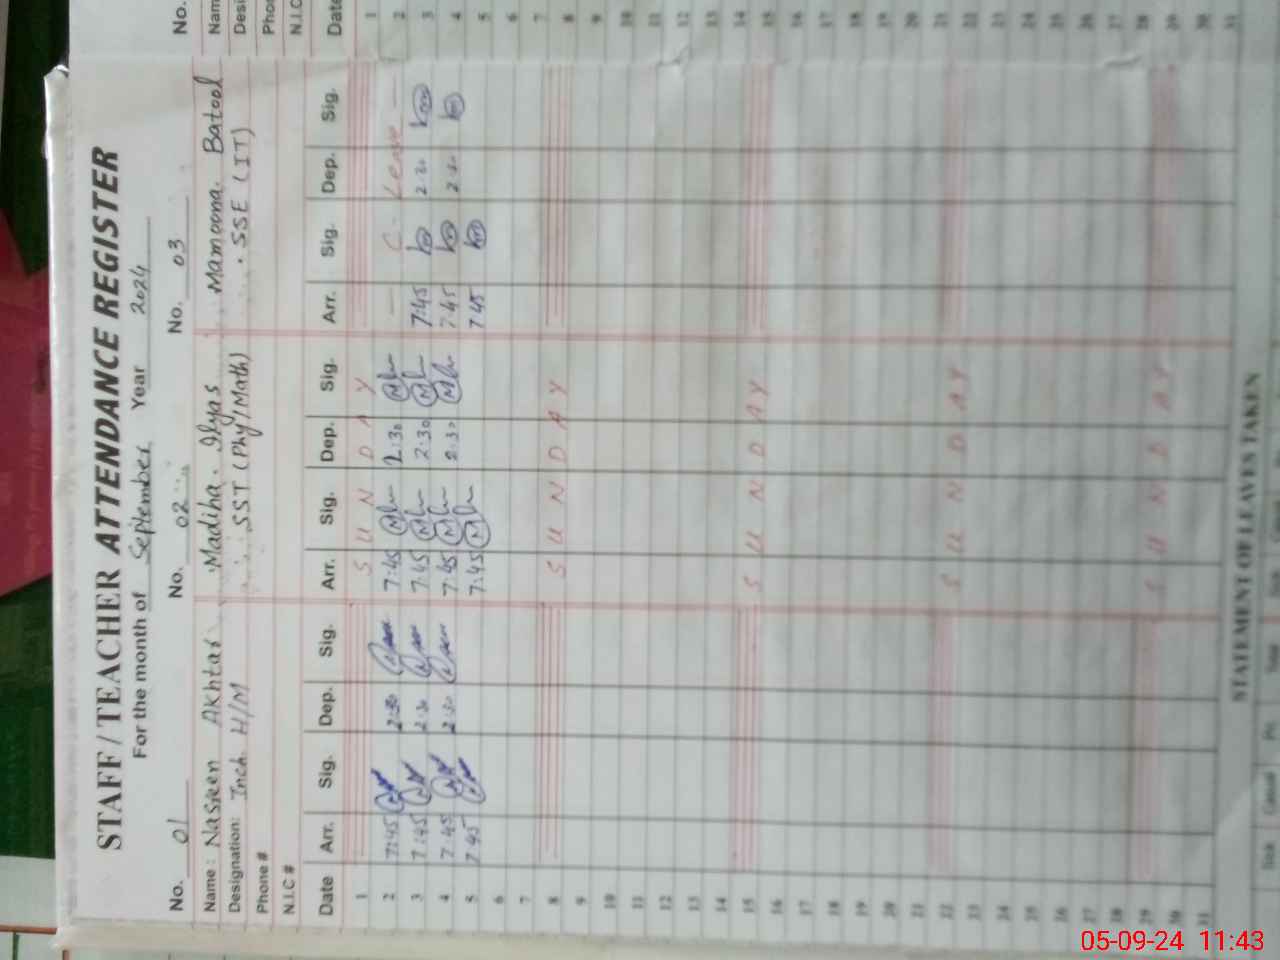 STAFF / TEACHER ATTENDANCE REGISTER
For the month of September Year 2024
No. 01 No. 02 No. 03 No.
Name: Nasreen Akhtar Madiha Ilyas Mamoona Batool Name
Designation: Inch H/M SST (Phy/Math) SSE (IT) Desi
Phone # Phon
N.I.C # N.I.C
Date Arr. Sig. Dep. Sig. Arr. Sig. Dep. Sig. Arr. Sig. Dep. Sig. Date
1 S U N D A Y 1
2 7:45 2:30 7:45 2:30 — C. Leave — 2
3 7:45 2:30 7:45 2:30 7:45 2:30 3
4 7:45 2:30 7:45 2:30 7:45 2:30 4
5 7:45 7:45 7:45 5
6 6
7 7
8 S U N D A Y 8
9 9
10 10
11 11
12 12
13 13
14 14
15 S U N D A Y 15
16 16
17 17
18 18
19 19
20 20
21 21
22 S U N D A Y 22
23 23
24 24
25 25
26 26
27 27
28 28
29 S U N D A Y 29
30 30
31 31
STATEMENT OF LEAVES TAKEN
Sick Casual Pri
05-09-24 11:43